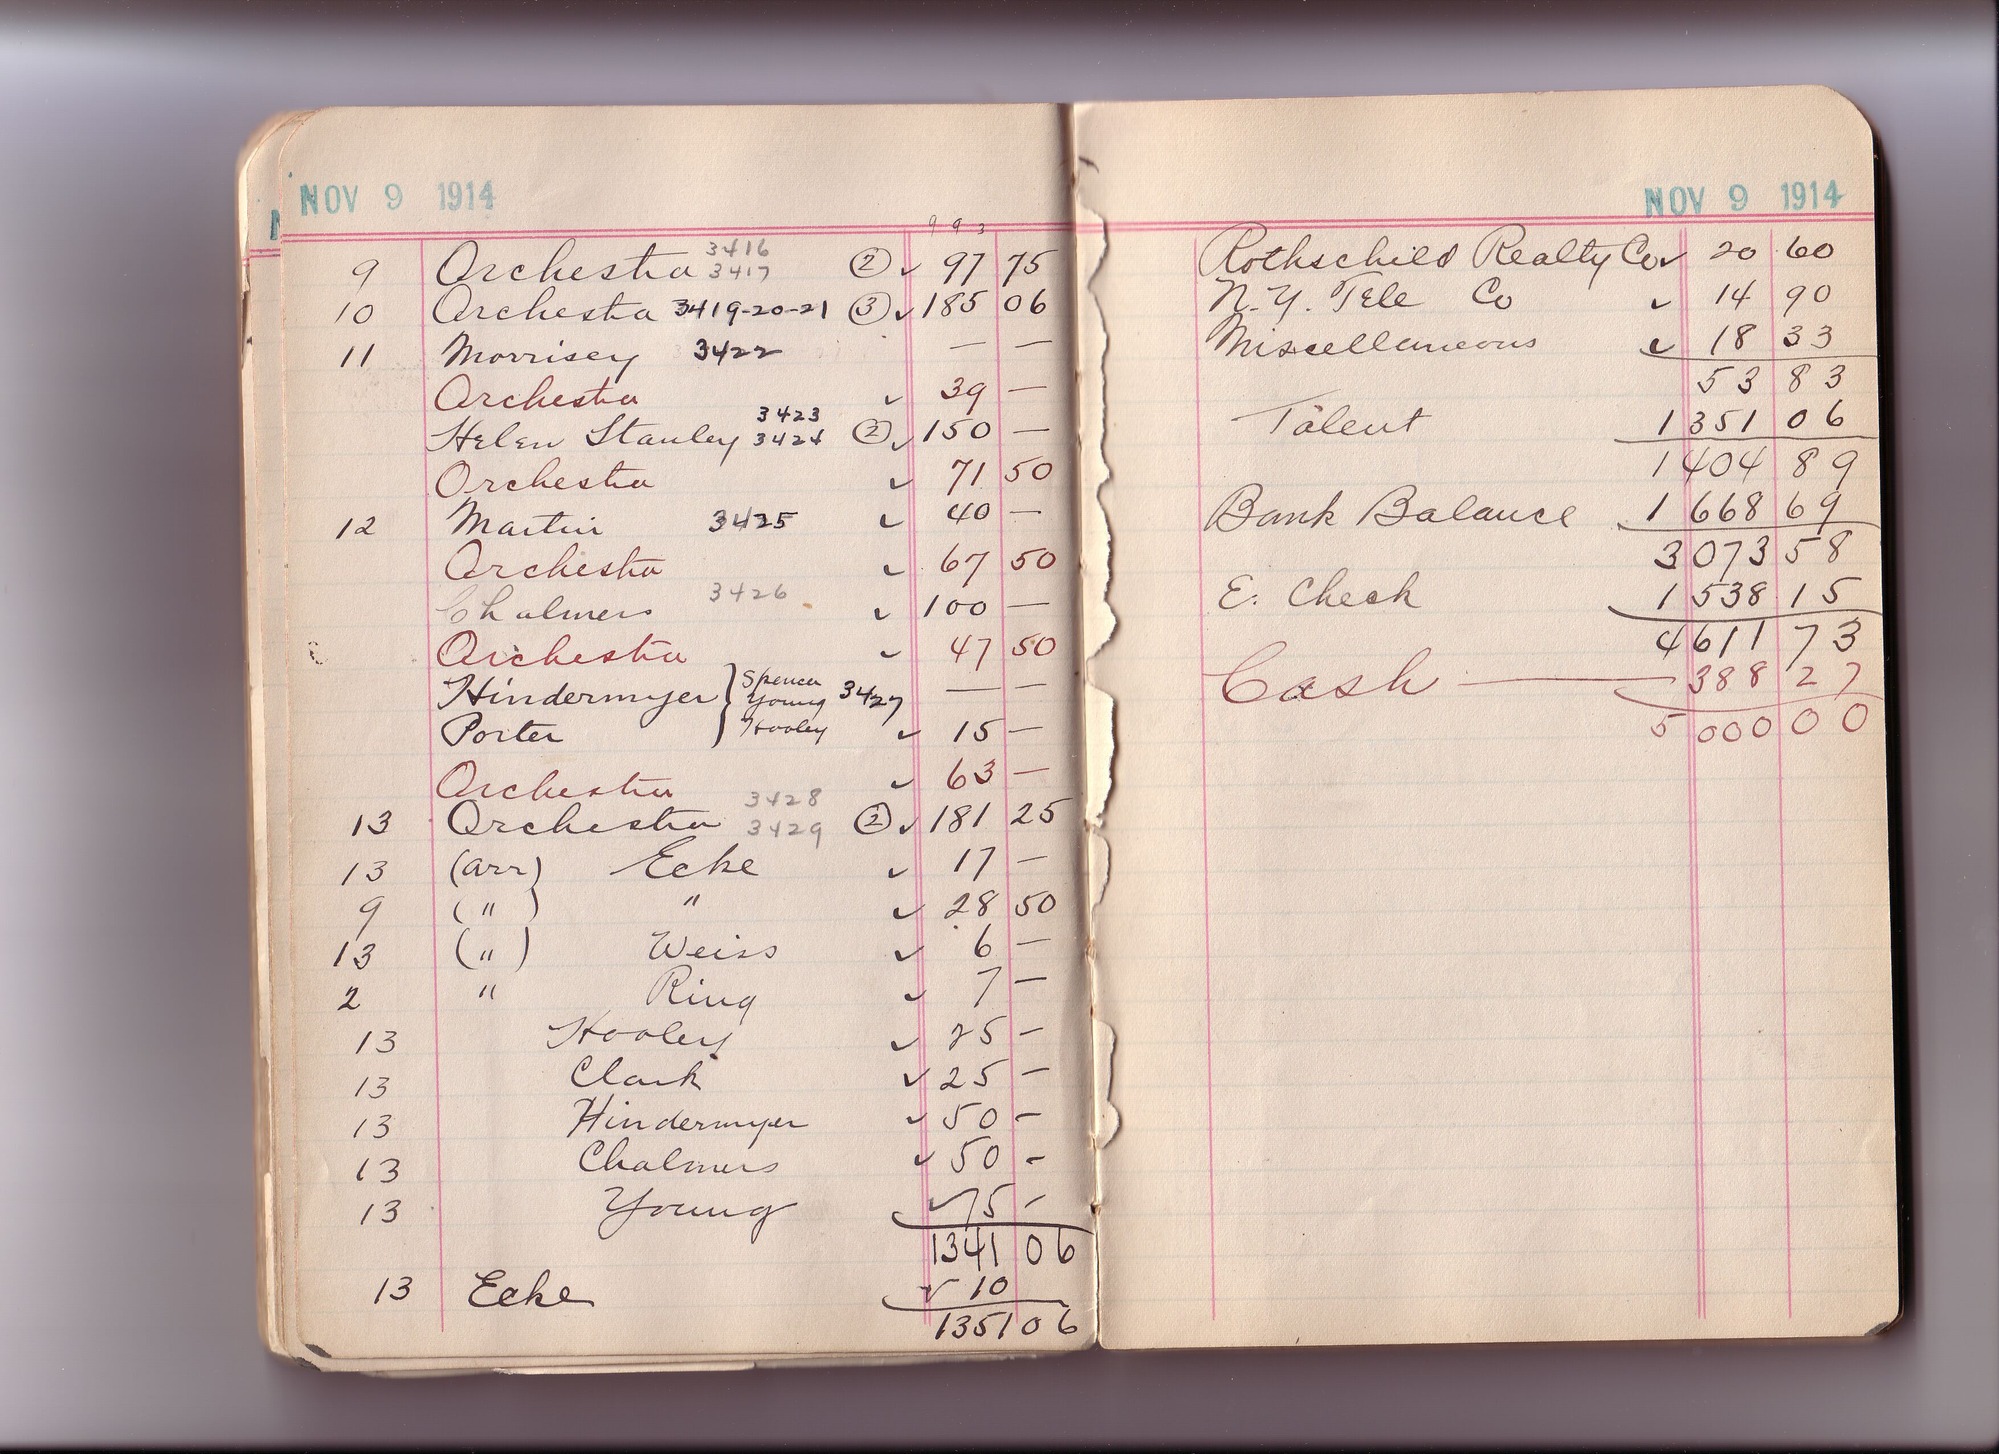 NOV 9 1914
9 9 3
9 Orchestra 3416 3417 ② ✓ 97 75
10 Orchestra 3419-20-21 ③ ✓ 185 06
11 Morrisey 3422 — —
Orchestra ✓ 39 —
Helen Stanley 3423 3424 ② ✓ 150 —
Orchestra ✓ 71 50
12 Martin 3425 ✓ 40 —
Orchestra ✓ 67 50
Chalmers 3426 ✓ 100 —
Orchestra ✓ 47 50
Hindermyer } Spencer Young Hooley 3427 — —
Porter ✓ 15 —
Orchestra ✓ 63 —
13 Orchestra 3428 3429 ② ✓ 181 25
13 (arr) Ecke ✓ 17 —
9 ( " ) " ✓ 28 50
13 ( " ) Weiss ✓ 6 —
2 " Ring ✓ 7 —
13 Hooley ✓ 25 —
13 Clark ✓ 25 —
13 Hindermyer ✓ 50 —
13 Chalmers ✓ 50 -
13 Young ✓ 75 -
1341 06
13 Ecke ✓ 10
1351 06
NOV 9 1914
Rothschild Realty Co ✓ 20 60
N.Y. Tele Co ✓ 14 90
Miscellaneous ✓ 18 33
53 83
Talent 1351 06
1404 89
Bank Balance 1668 69
3073 58
E. Check 1538 15
4611 73
Cash — 388 27
5000 00